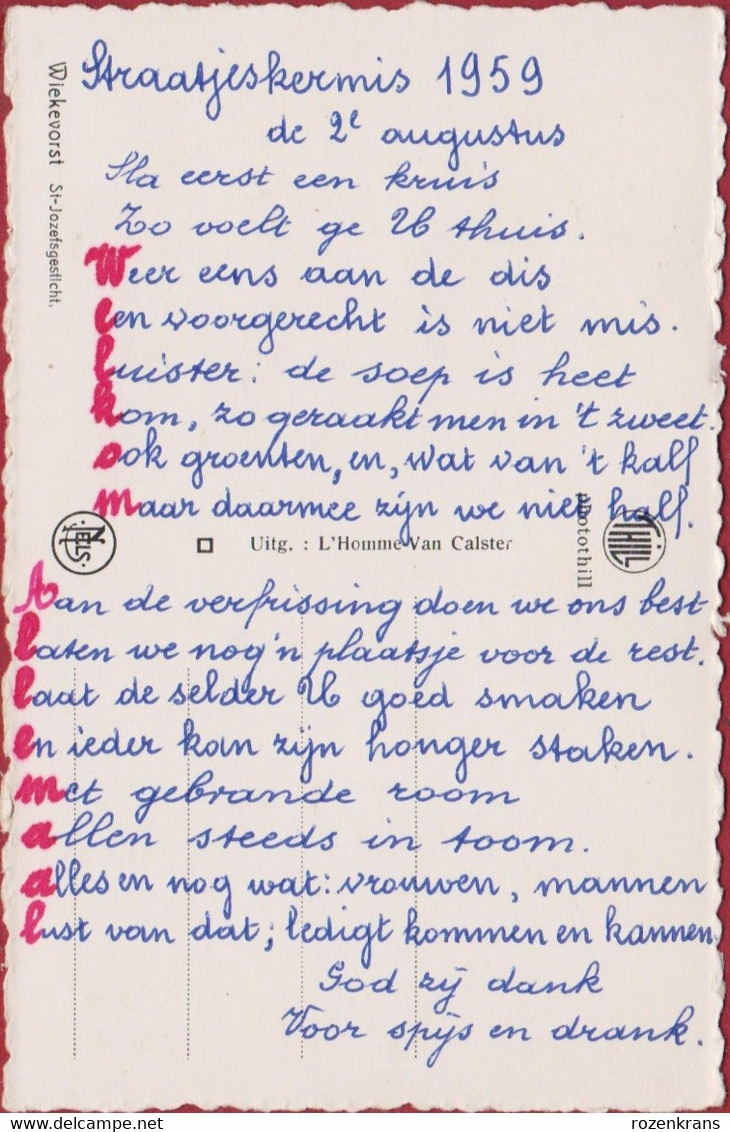 Straatjeskermis 1959
de 2e augustus
Sla eerst een kruis
Zo voelt ge U thuis.
Weer eens aan de dis
een voorgerecht is niet mis.
luister: de soep is heet
kom, zo geraakt men in 't zweet.
ook groenten, en, wat van 't kalf
maar daarmee zijn we niet half.
Wiekevorst St-Jozefsgesticht.
NELS
Uitg. : L'Homme-Van Calster
photothill
THILL
Aan de verfrissing doen we ons best
laten we nog 'n plaatsje voor de rest.
laat de selder U goed smaken
en ieder kan zijn honger staken.
met gebrande room
allen steeds in toom.
alles en nog wat: vrouwen, mannen
lust van dat; ledigt kommen en kannen.
God zij dank
Voor spijs en drank.
rozenkrans